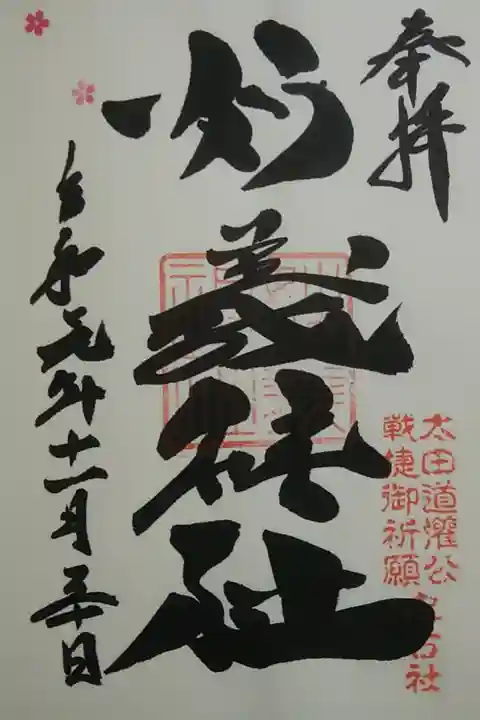 奉拝
太田道灌公
戦捷御祈願
古社
妙義神社
令和元年十一月三十日